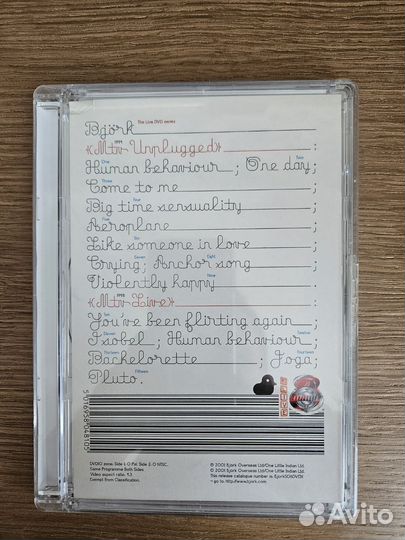 Björk The Live DVD series
1994
«Mtv Unplugged» :
One Two
Human behaviour ; One day ;
Three
Come to me ;
Four
Big time sensuality ;
Five
Aeroplane ;
Six
Like someone in love ;
Seven Eight
Crying ; Anchor song ;
Nine
Violently happy
1998
«Mtv Live» :
Ten
You've been flirting again ;
Eleven Twelve
Isobel ; Human behaviour ;
Thirteen Fourteen
Bachelorette ; Joga ;
Fifteen
Pluto .
5016958048105
Same Programme Both Sides.
Exempt from Classification.
© 2001 Bjork Overseas Ltd/One Little Indian Ltd.
℗ 2001 Bjork Overseas Ltd/One Little Indian Ltd.
> go to: http://www.bjork.com
Avito